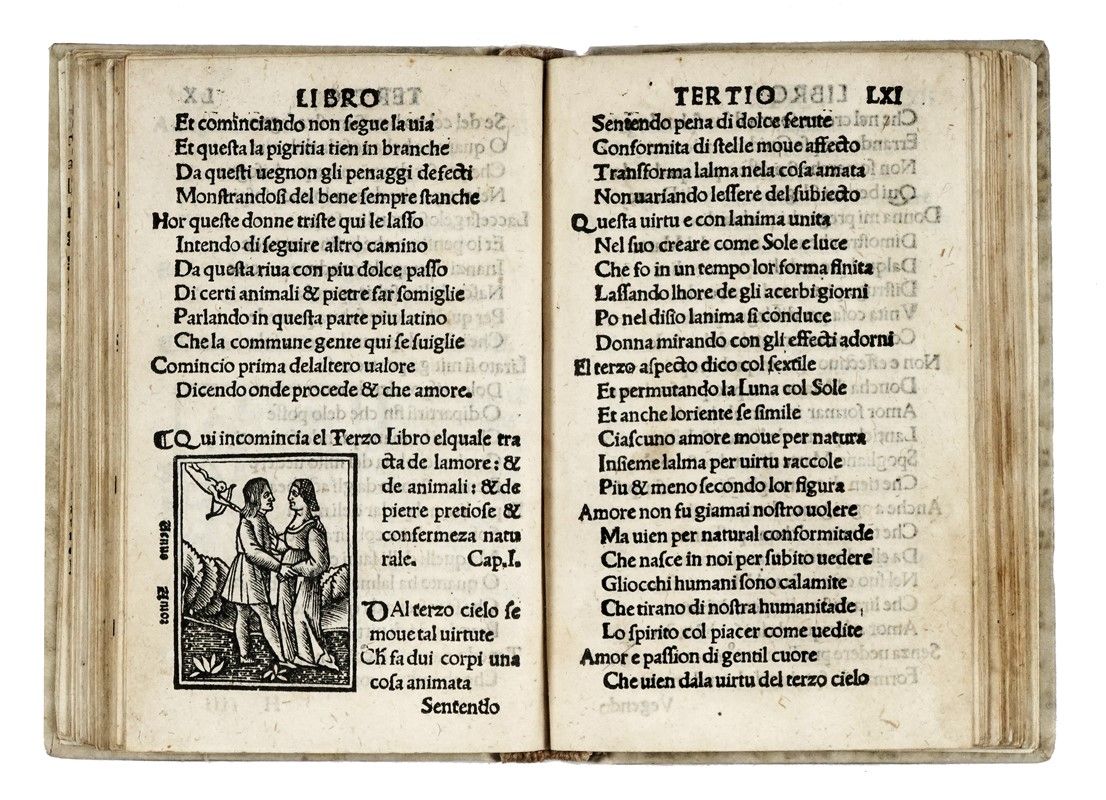 LIBRO
Et cominciando non ſegue la uia
Et queſta la pigritia tien in branche
Da queſti uegnon gli penaggi defecti
Monſtrandoſi del bene ſempre ſtanche
Hor queſte donne triſte qui le laſſo
Intendo di ſeguire altro camino
Da queſta riua con piu dolce paſſo
Di certi animali & pietre far ſomiglie
Parlando in queſta parte piu latino
Che la commune gente qui ſe ſuiglie
Comincio prima delaltero ualore
Dicendo onde procede & che amore.
¶Qui incomincia el Terzo Libro elquale tra
cta de lamore: &
de animali: & de
pietre pretioſe &
confermeza natu
rale. Cap.I.
Venus Amor
DAl terzo cielo ſe
moue tal uirtute
Ch̄ fa dui corpi una
coſa animata
Sentendo
TERTIO LXI
Sentendo pena di dolce ferute
Conformita di ſtelle moue affecto
Transforma lalma nela coſa amata
Non uariando leſſere del ſubiecto
Queſta uirtu e con lanima unita
Nel ſuo creare come Sole e luce
Che fo in un tempo lor forma finita
Laſſando lhore de gli acerbi giorni
Po nel diſio lanima ſi conduce
Donna mirando con gli effecti adorni
El terzo aſpecto dico col ſextile
Et permutando la Luna col Sole
Et anche loriente ſe ſimile
Ciaſcuno amore moue per natura
Inſieme lalma per uirtu raccole
Piu & meno ſecondo lor figura
Amore non fu giamai noſtro uolere
Ma uien per natural conformitade
Che naſce in noi per ſubito uedere
Gliocchi humani ſono calamite
Che tirano di noſtra humanitade
Lo ſpirito col piacer come uedite
Amor e paſſion di gentil cuore
Che uien dala uirtu del terzo cielo